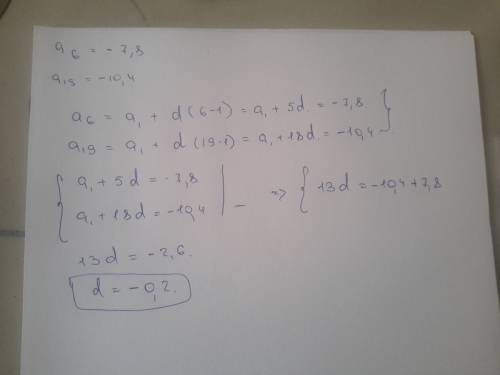 a₆ = -7,8
a₁₉ = -10,4
a₆ = a₁ + d(6-1) = a₁ + 5d = -7,8
a₁₉ = a₁ + d(19-1) = a₁ + 18d = -10,4
{ a₁ + 5d = -7,8
a₁ + 18d = -10,4 | - => { 13d = -10,4 + 7,8
13d = -2,6.
d = -0,2.